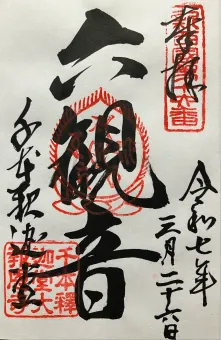 奉拝
令和七年
三月二十六日
六観音
千本釈迦堂
千本釋
迦堂大
報恩寺